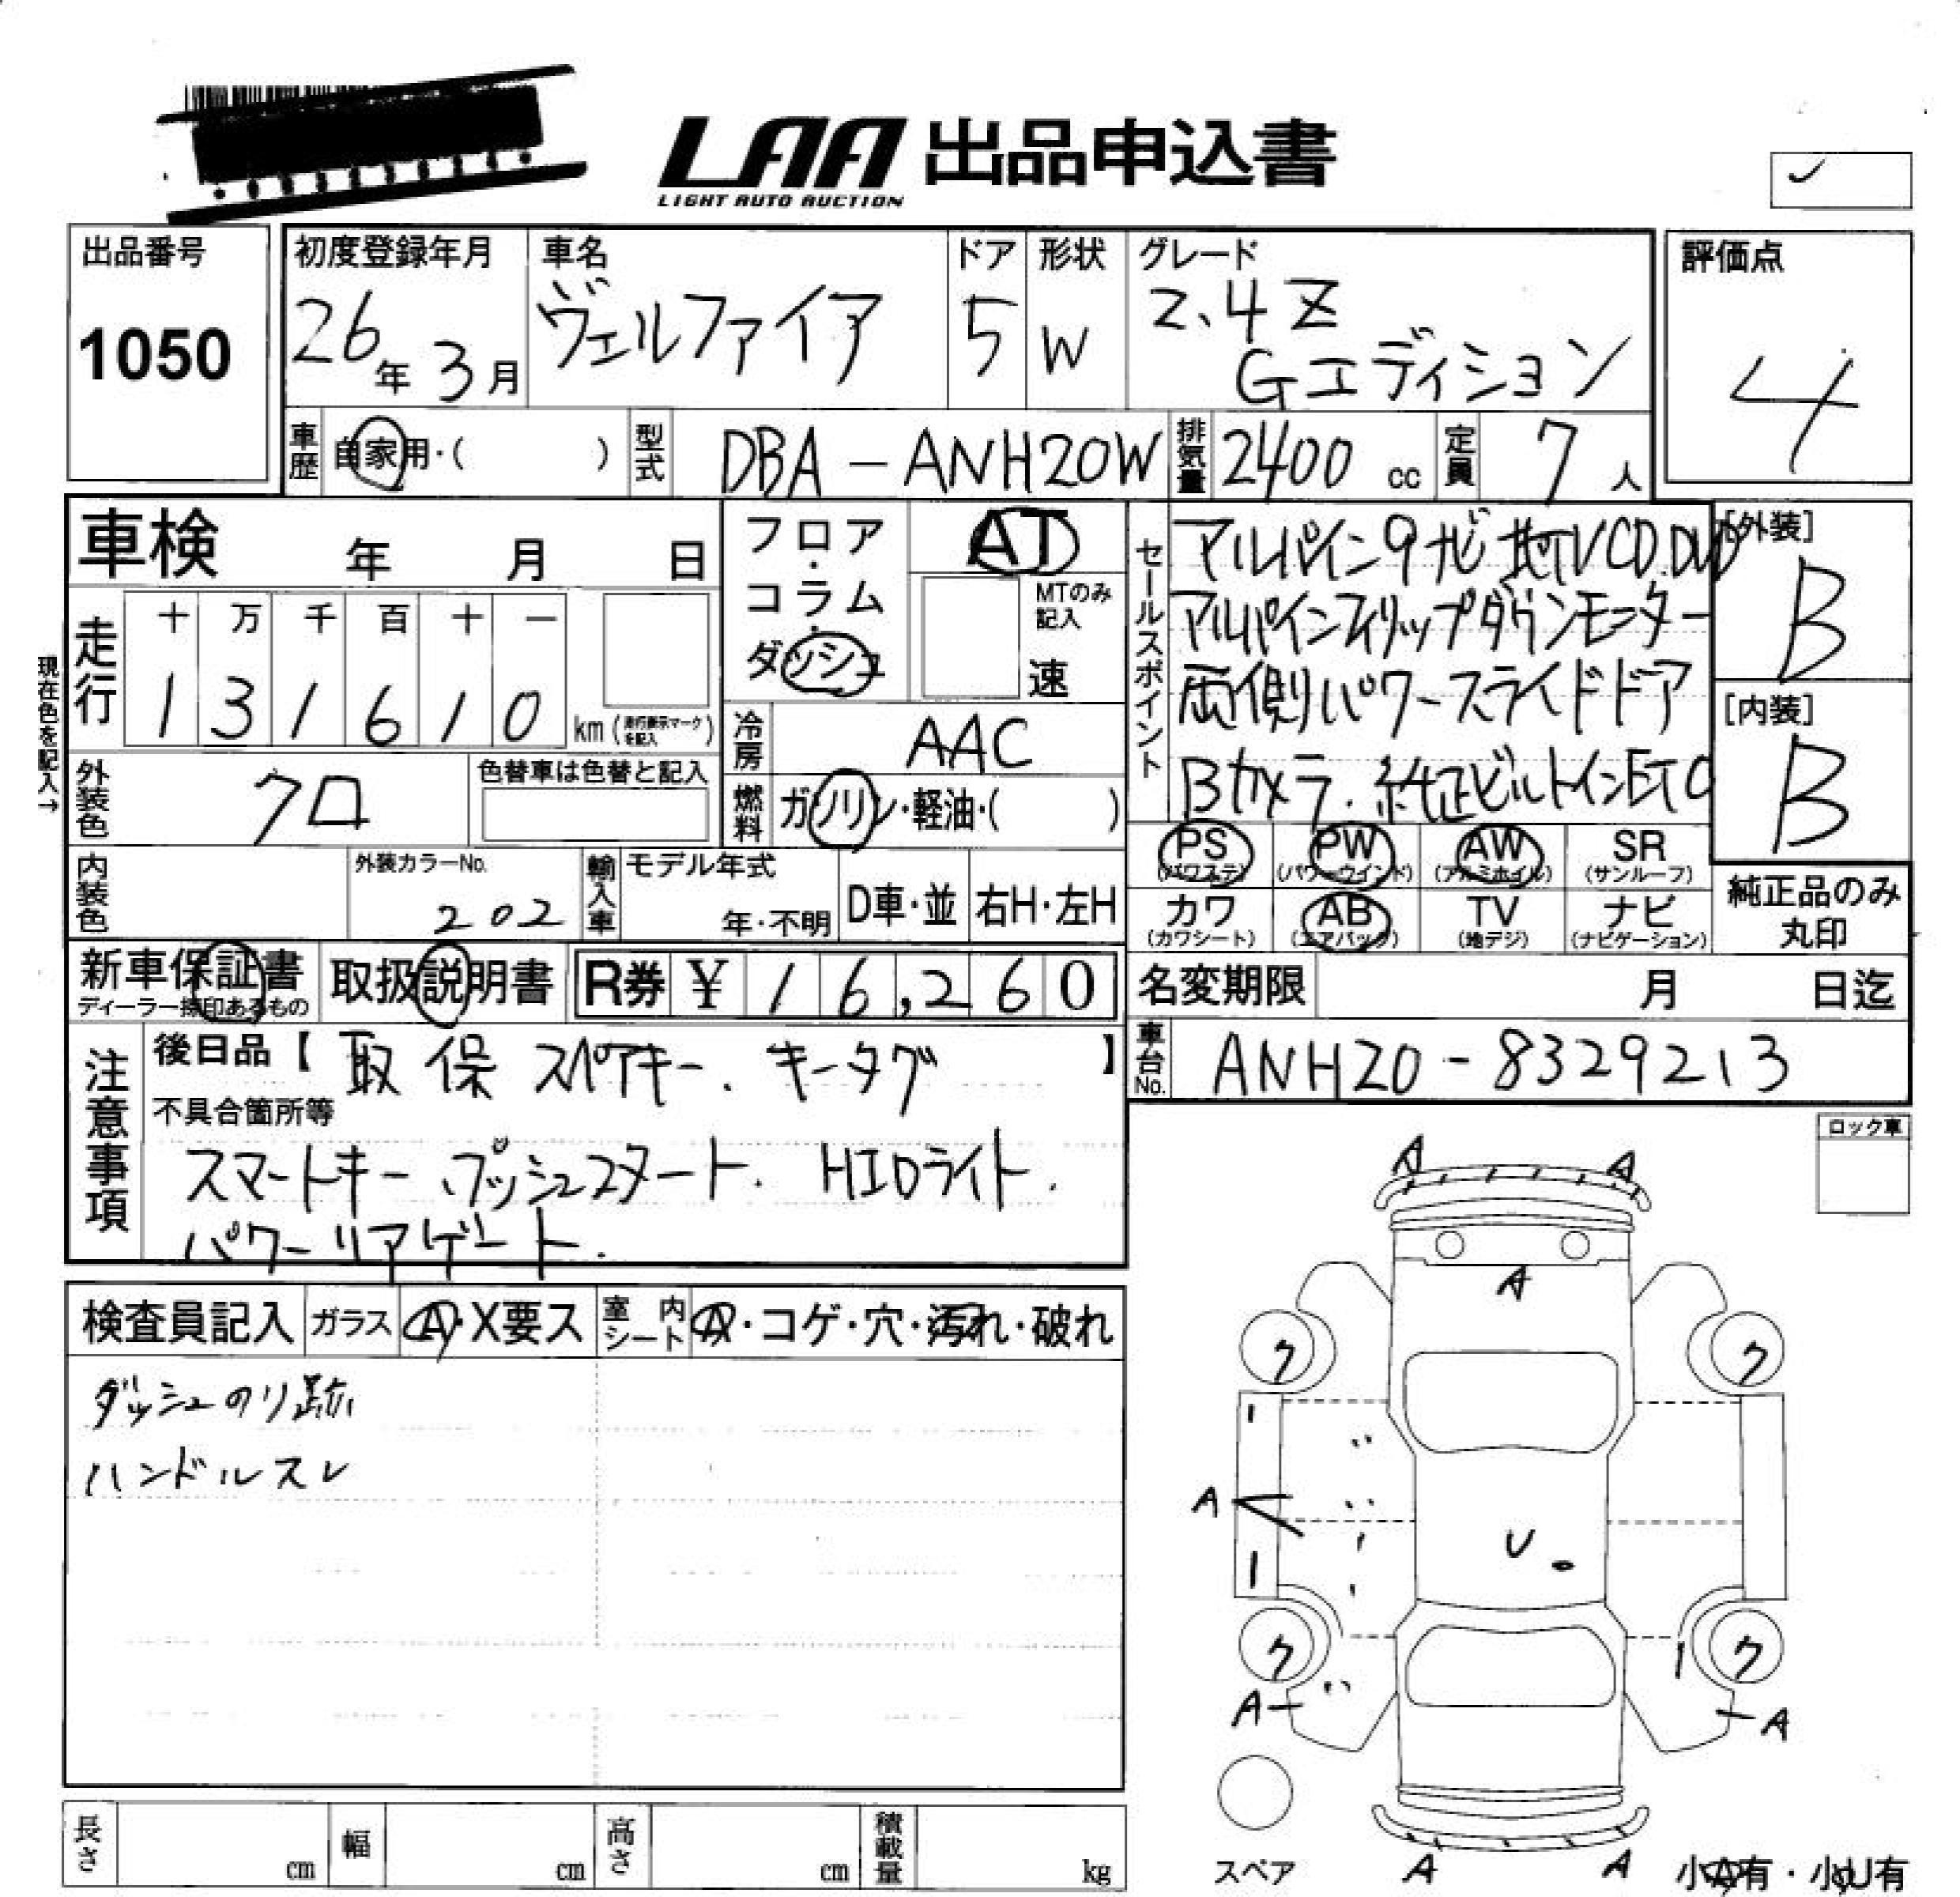 LAA 出品申込書
LIGHT AUTO AUCTION
出品番号
1050
初度登録年月
26年 3月
車名
ヴェルファイア
ドア
5
形状
W
グレード
2.4 Z
Gエディション
評価点
4
車歴
自家用・( )
型式
DBA-ANH20W
排気量
2400 cc
定員
7 人
車検 年 月 日
走行
十 万 千 百 十 一
1 3 1 6 1 0 km (走行表示マークを記入)
現在色を記入→
フロア・コラム・ダッシュ
AT
MTのみ記入
速
冷房
AAC
燃料
ガソリン・軽油・( )
外装色
クロ
色替車は色替と記入
内装色
外装カラーNo.
202
輸入車
モデル年式
年・不明
D車・並
右H・左H
セールスポイント
アルパイン9ナビ 地TV CD.DVD
アルパインフリップダウンモニター
両側パワースライドドア
Bカメラ. 純正ビルトインETC
[外装]
B
[内装]
B
PS (パワステ) PW (パワーウインド) AW (アルミホイル) SR (サンルーフ)
カワ (カワシート) AB (エアバッグ) TV (地デジ) ナビ (ナビゲーション)
純正品のみ
丸印
新車保証書
ディーラー捺印あるもの
取扱説明書
R券 ¥ 16,260
名変期限 月 日迄
車台No.
ANH20-8329213
注意事項
後日品【 取 保 スペアキー. キータグ 】
不具合箇所等
スマートキー.プッシュスタート. HIDライト.
パワーリアゲート.
ロック車
検査員記入
ガラス
A・X要ス
室内シート
A・コゲ・穴・汚れ・破れ
ダッシュのり跡
ハンドルスレ
A A
A
ク ク
A
U
ク ク
A A
A A
スペア
小A有・小U有
長さ cm
幅 cm
高さ cm
積載量 kg